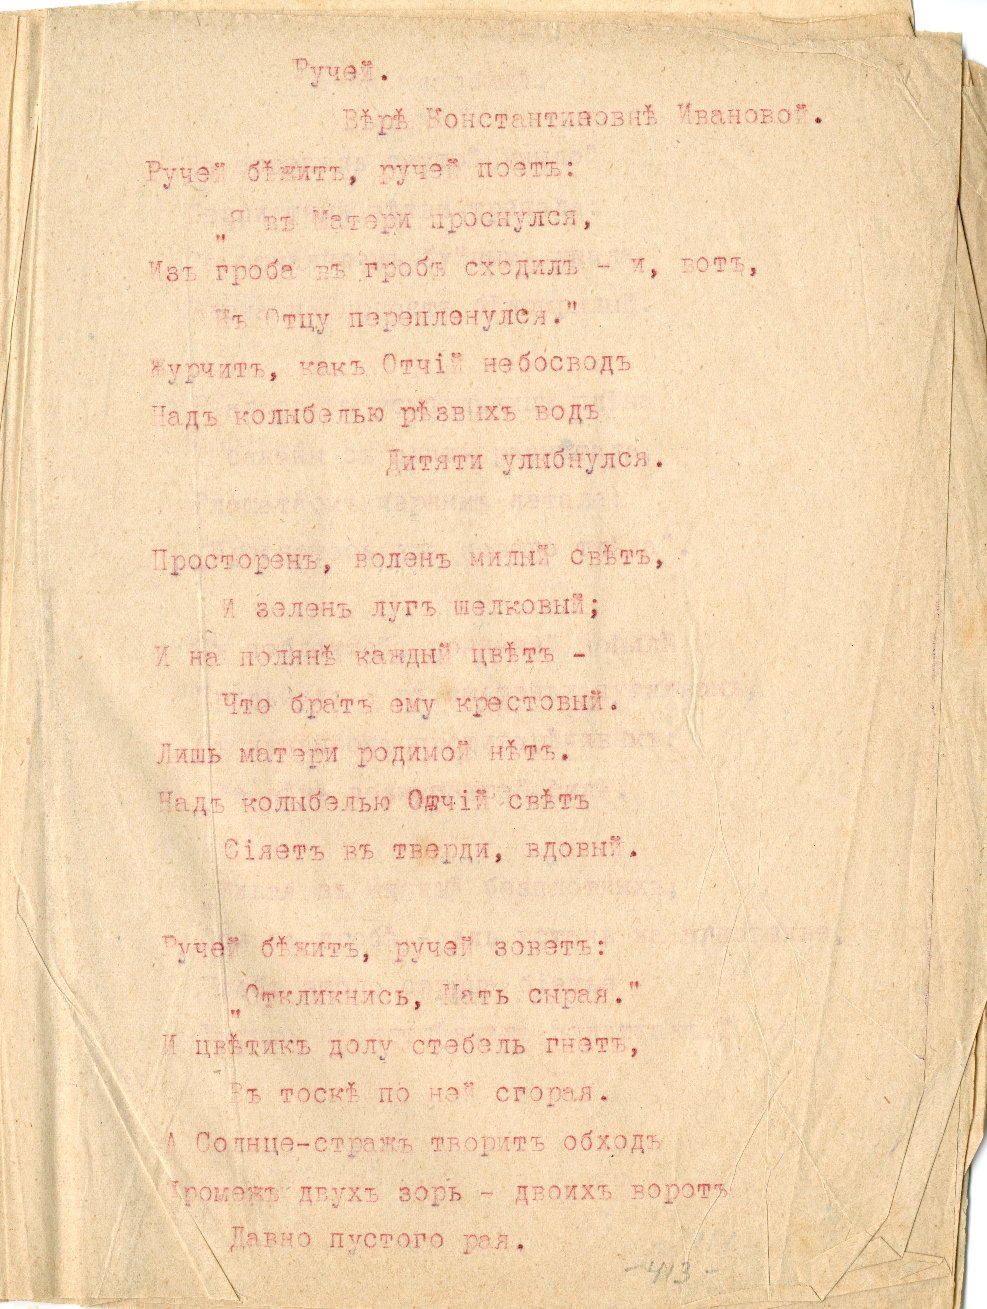 Ручей.
Вѣрѣ Константиновнѣ Ивановой.
Ручей бѣжитъ, ручей поетъ:
„Я въ Матери проснулся,
Изъ гроба въ гробъ сходилъ - и, вотъ,
Къ Отцу переплеснулся."
Журчитъ, какъ Отчій небосводъ
Надъ колыбелью рѣзвыхъ водъ
Дитяти улыбнулся.
Просторенъ, воленъ милый свѣтъ,
И зеленъ лугъ шелковый;
И на полянѣ каждый цвѣтъ -
Что братъ ему крестовый.
Лишь матери родимой нѣтъ.
Надъ колыбелью Отчій свѣтъ
Сіяетъ въ тверди, вдовый.
Ручей бѣжитъ, ручей зоветъ:
„Откликнись, Мать сырая."
И цвѣтикъ долу стебель гнетъ,
Въ тоскѣ по ней сгорая.
А Солнце-стражъ творитъ обходъ
Промежъ двухъ зорь - двоихъ воротъ
Давно пустого рая.
-413-